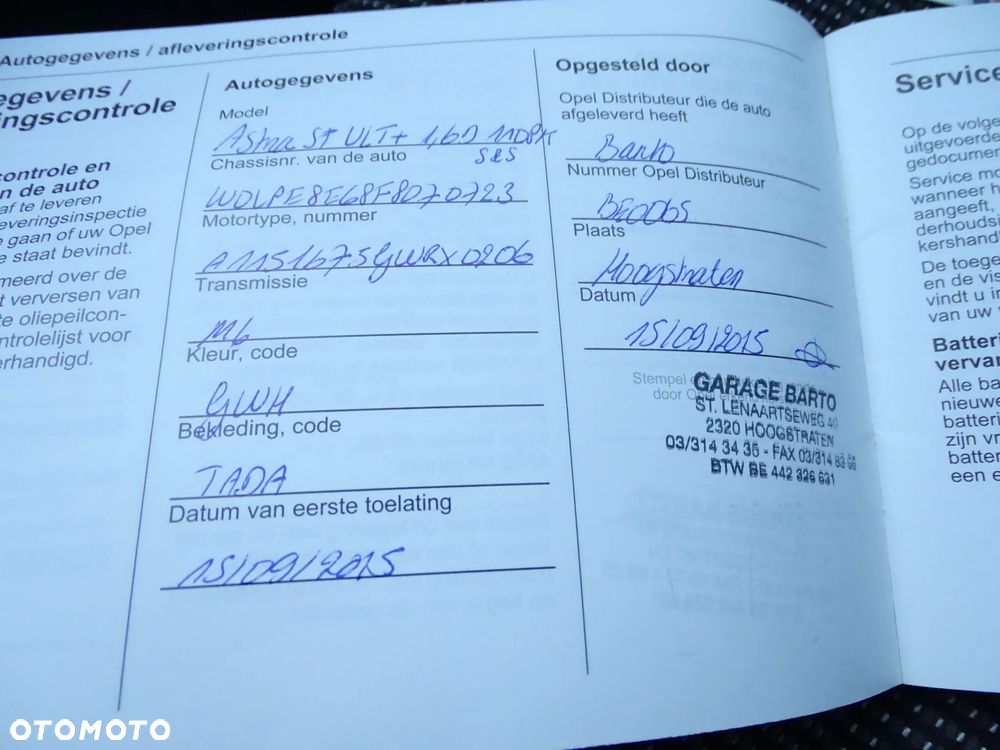 Autogegevens / afleveringscontrole
egevens /
ingscontrole
controle en
n de auto
af te leveren
everingsinspectie
e gaan of uw Opel
e staat bevindt.
meerd over de
t verversen van
te oliepeilcon-
ntrolelijst voor
erhandigd.
Autogegevens
Model
Astra ST ULT+ 1,6D 110PK
S&S
Chassisnr. van de auto
W0LPE8E68F8070723
Motortype, nummer
Transmissie
M6
Kleur, code
GWH
Bekleding, code
TADA
Datum van eerste toelating
15/09/2015
Opgesteld door
Opel Distributeur die de auto
afgeleverd heeft
Barto
Nummer Opel Distributeur
BE0065
Plaats
Hoogstraten
Datum
15/09/2015
Stempel
door
GARAGE BARTO
ST. LENAARTSEWEG 40
2320 HOOGSTRATEN
03/314 34 35 - FAX 03/314 83 68
BTW BE 442 326 631
Service
Op de volge
uitgevoerde
gedocumen
Service mo
wanneer h
aangeeft,
derhouds
kershand
De toege
en de vis
vindt u in
van uw
Batteri
vervan
Alle ba
nieuwe
batteri
zijn vr
batter
een e
OTOMOTO